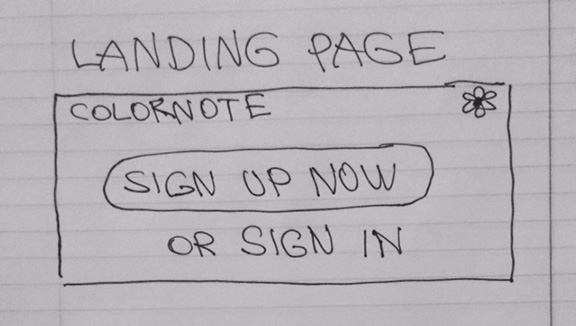 LANDING PAGE
COLORNOTE
SIGN UP NOW
OR SIGN IN